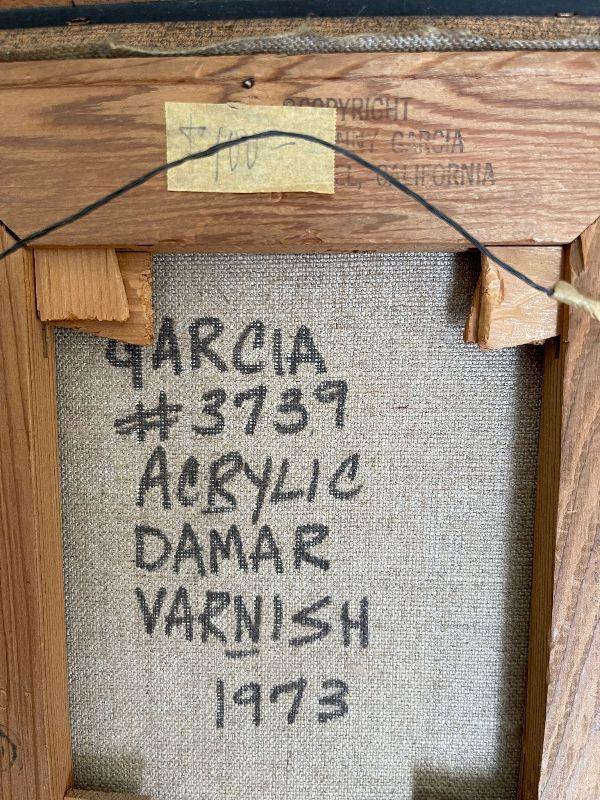 ©COPYRIGHT
NNY GARCIA
CALIFORNIA
$400—
GARCIA
#3739
ACRYLIC
DAMAR
VARNISH
1973